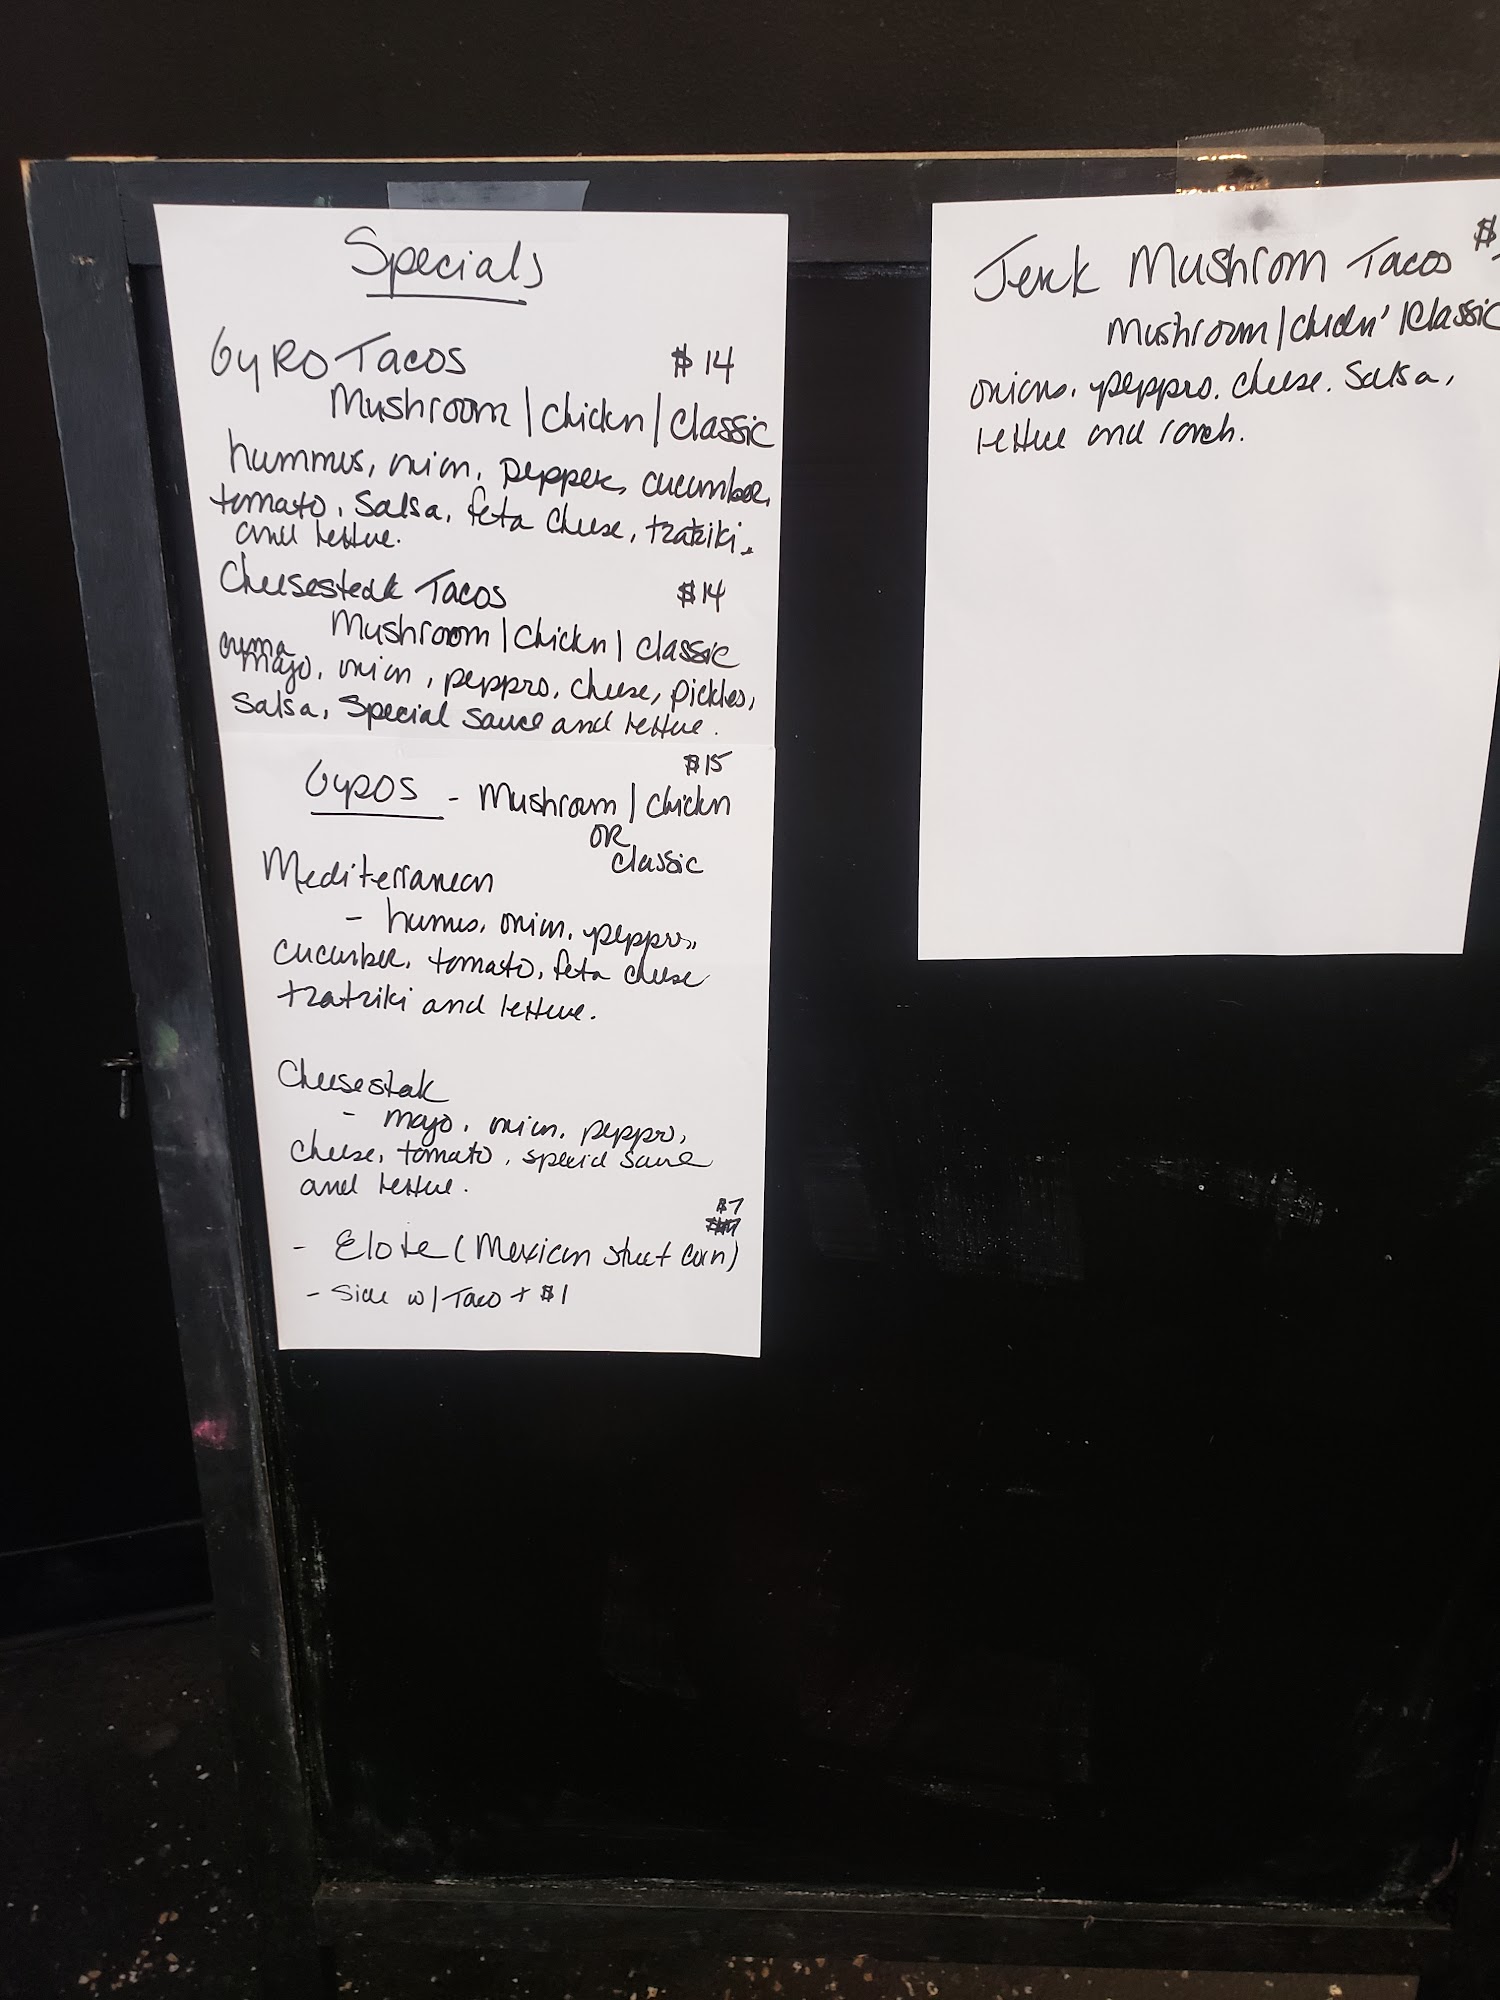 Specials
Gyro Tacos $14
Mushroom | Chickn | Classic
hummus, onion, pepper, cucumber,
tomato, Salsa, feta cheese, tzatziki,
and lettuce.
Cheesesteak Tacos $14
Mushroom | Chickn | Classic
crema
mayo, onion, peppers, cheese, pickles,
Salsa, Special Sauce and lettuce.
$15
Gyros - Mushroom | Chickn
OR
Classic
Mediterranean
- humus, onion, peppers,
cucumber, tomato, feta cheese
tzatziki and lettuce.
Cheesesteak
- mayo, onion, peppers,
cheese, tomato, special sauce
and lettuce.
$7
- Elote (Mexican street corn)
- Side w/ Taco + $1
Jerk Mushrom Tacos $
Mushroom | Chickn' | Classic
onions, peppers, cheese, Salsa,
lettuce and ranch.